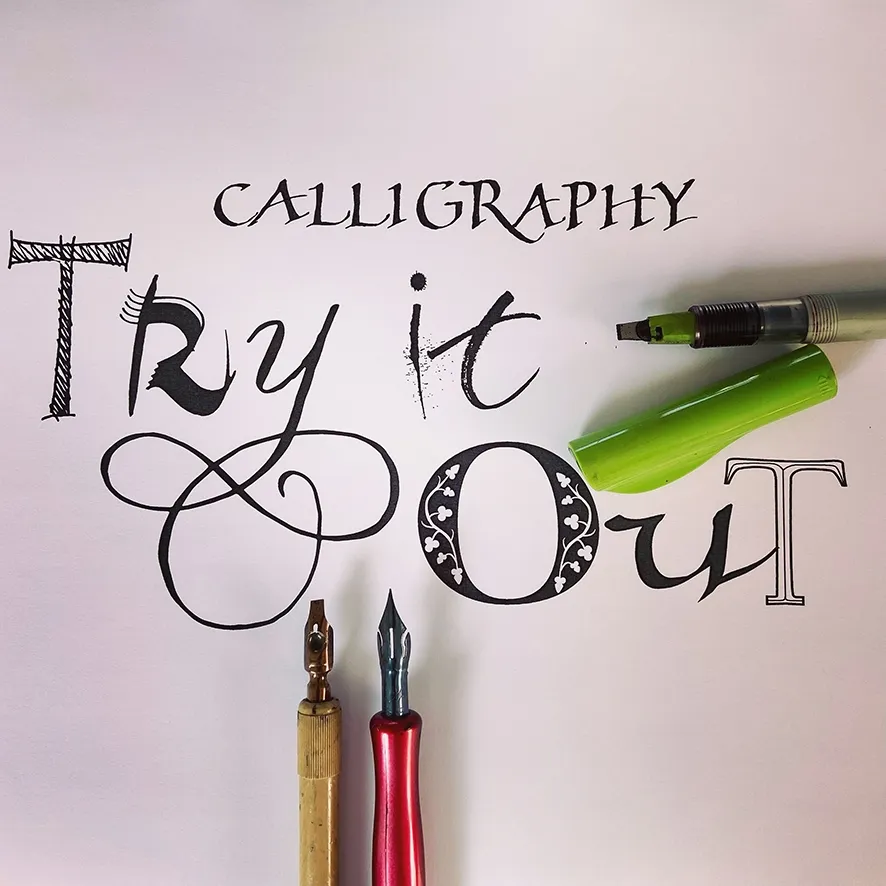 CALLIGRAPHY
Try it
OuT